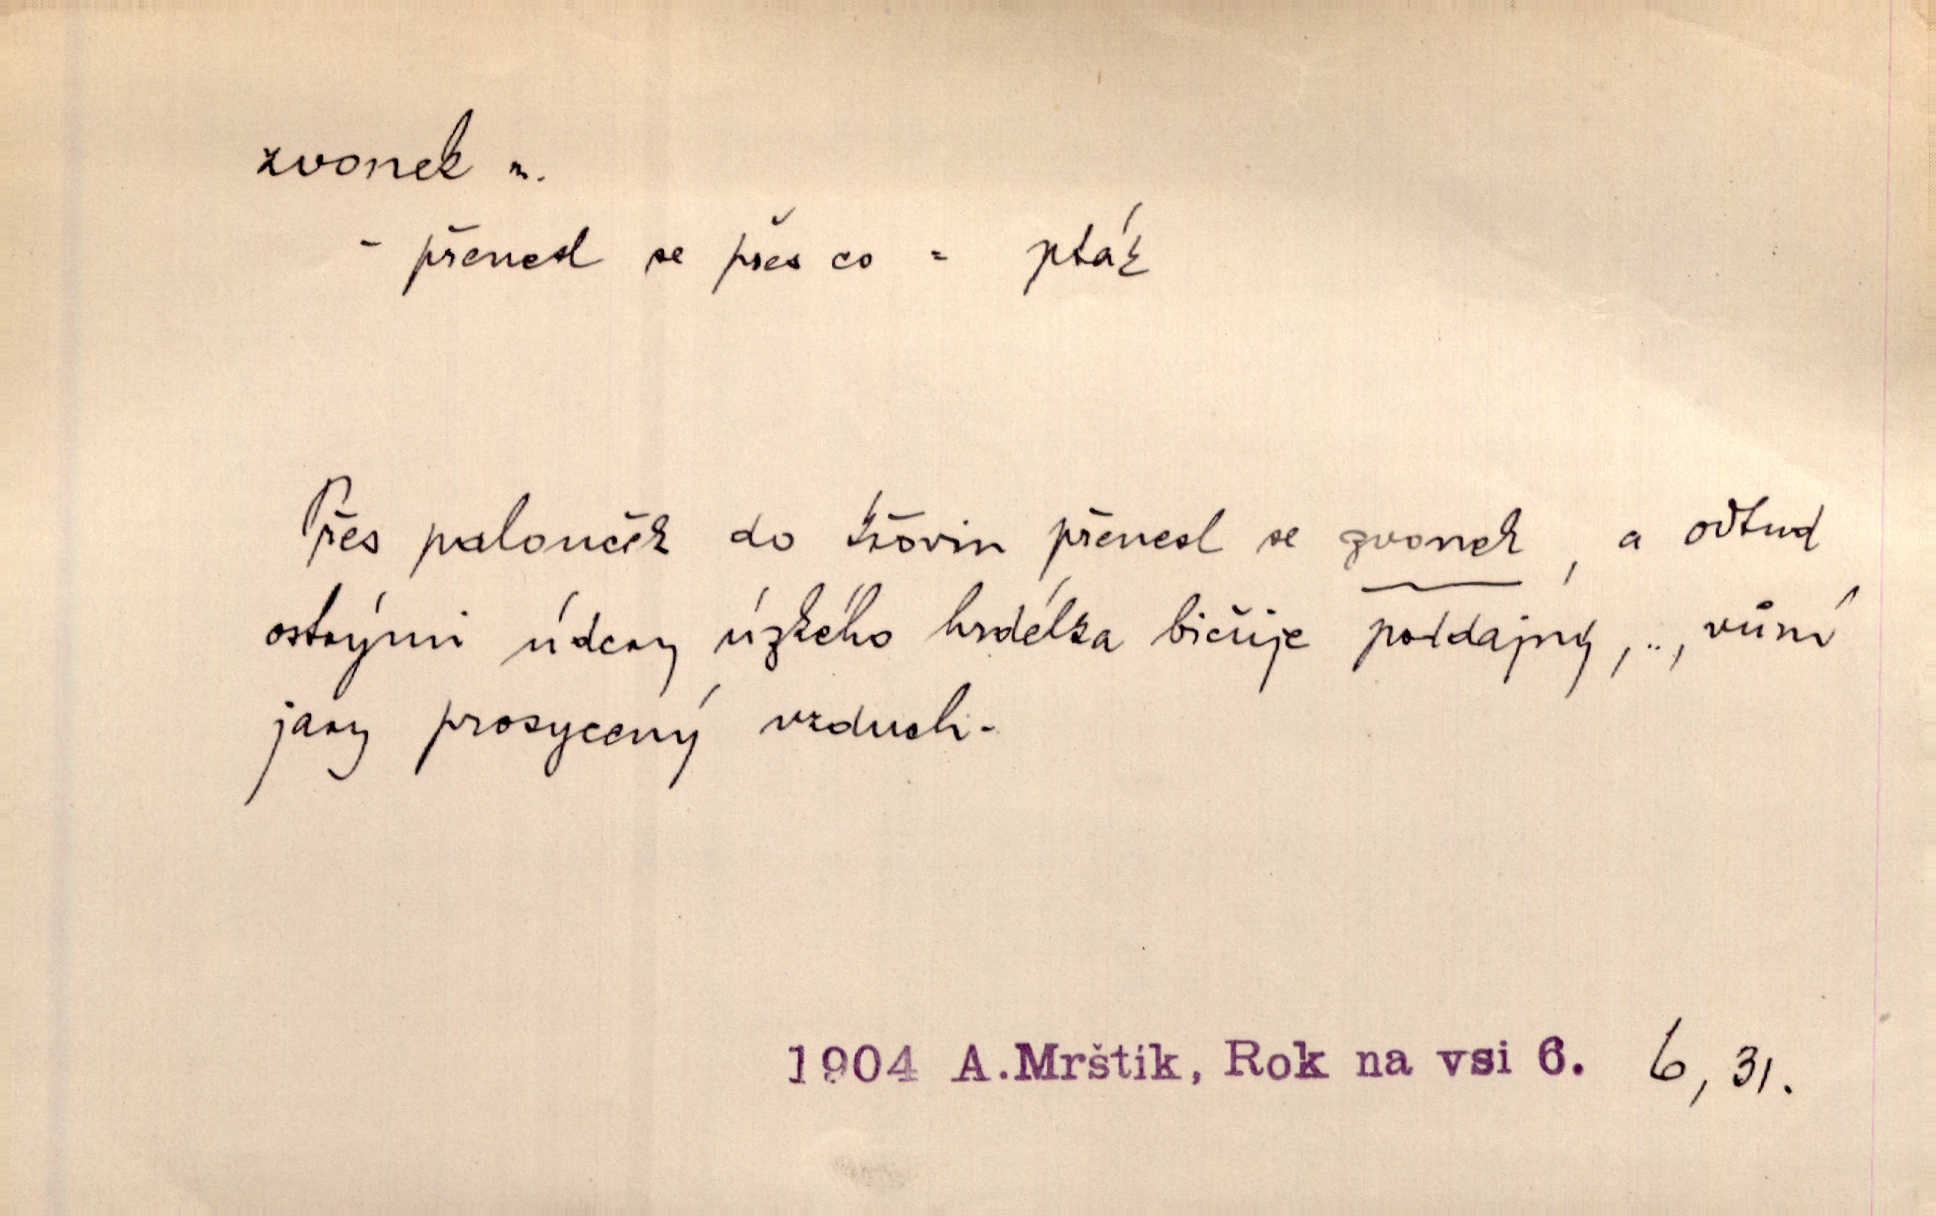 zvonek m.
- přenesl se přes co = pták
Přes palouček do křovin přenesl se zvonek, a odtud
ostrými údery úzkého hrdélka bičuje poddajný, .., vůní
jary prosycený vzduch.
1904 A.Mrštík, Rok na vsi 6. 6, 31.